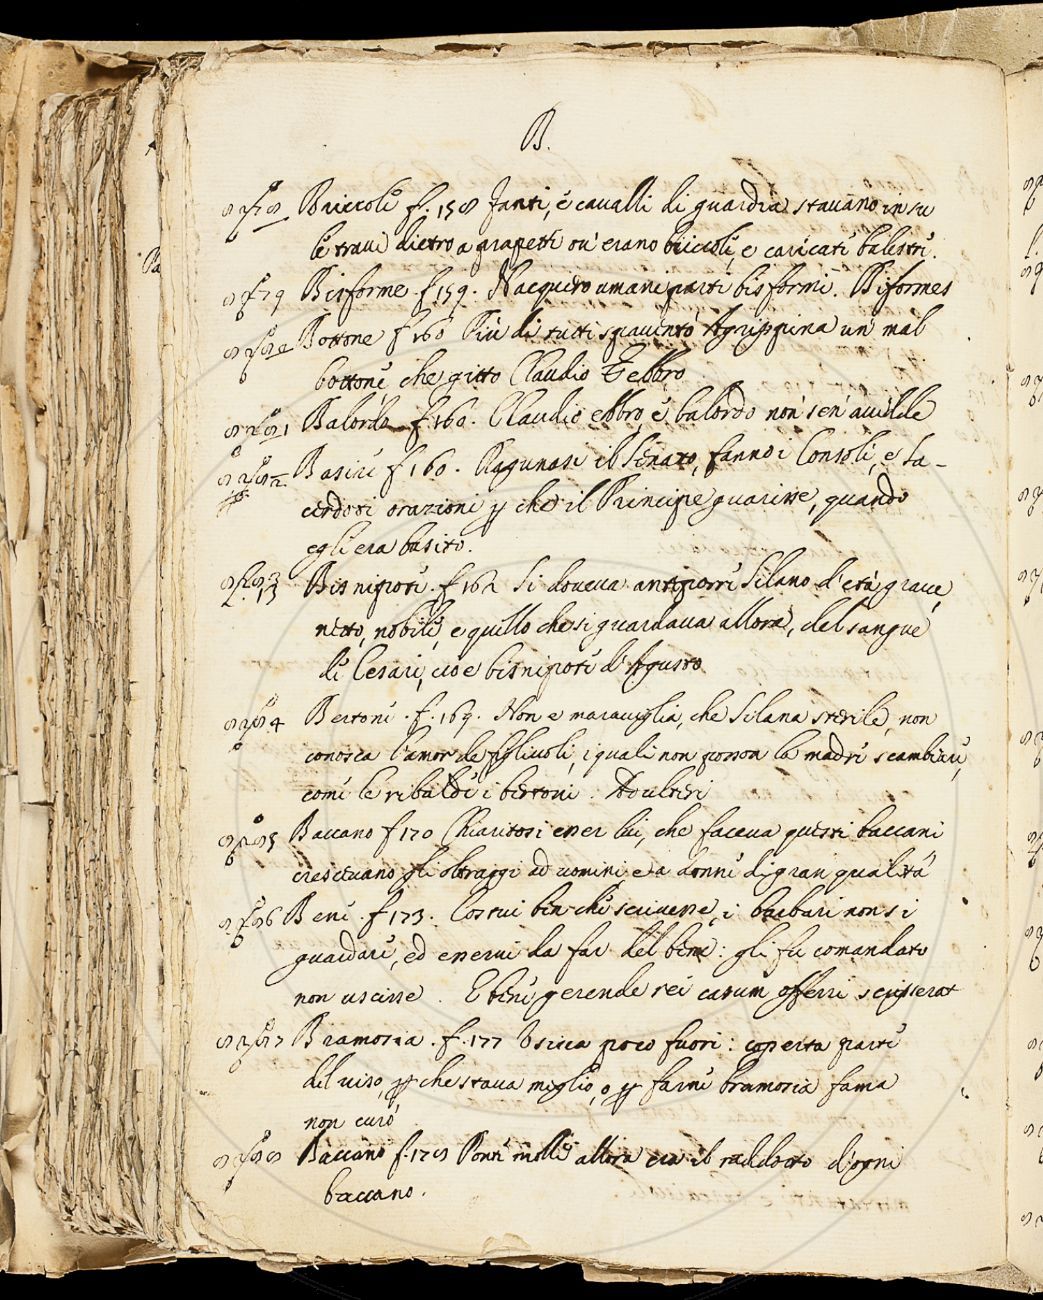 B.
Briccole f. 158 Fanti, e cavalli di guardia stavano in su
le travi dietro a parapetti ov' erano briccole, e caricati balestri.
Bisforme. f. 159. Nacquero umani parti bisformi. Biformes
Bottone f. 160 Piu di tutti spaventò Agrippina un mal
bottone che gitto Claudio Ebbro
Balordo f. 160. Claudio ebbro, e balordo non sen' avidde
Basire f. 160. Ragunasi il Senato, fanno i Consoli, e Sa-
cerdoti orazioni p che il Principe guarisse, quando
egli era basito.
Bisnipote. f. 162 Si doveva antiporre Silano d'età grave,
netto, nobile, e quello che si guardava allora, del sangue
di Cesari, cioe bisnipote d'Agusto
Bertone. f. 169. Non e maraviglia, che Silana sterile, non
conosca l'amor de figliuoli, i quali non posson le madri scambiare,
come le ribalde i bertoni. Adulteri
Baccano f. 170 Chiaritosi esser lui, che faceva questi baccani
crescevano gli oltraggi ad uomini e a donne di gran qualità
Bene. f. 173. Costui ben che scrivesse, i barbari non si
guardare, ed esservi da far del bene: gli fu comandato
non uscisse. E bene gerende rei casum offerri scripserat
Bramosia. f. 177 Usciva poco fuori: coperta parte
del viso, p che stava meglio, o p farne bramosia fama
non curò
Baccano f. 178 Ponte molle allora era il raddotto d'ogni
baccano.